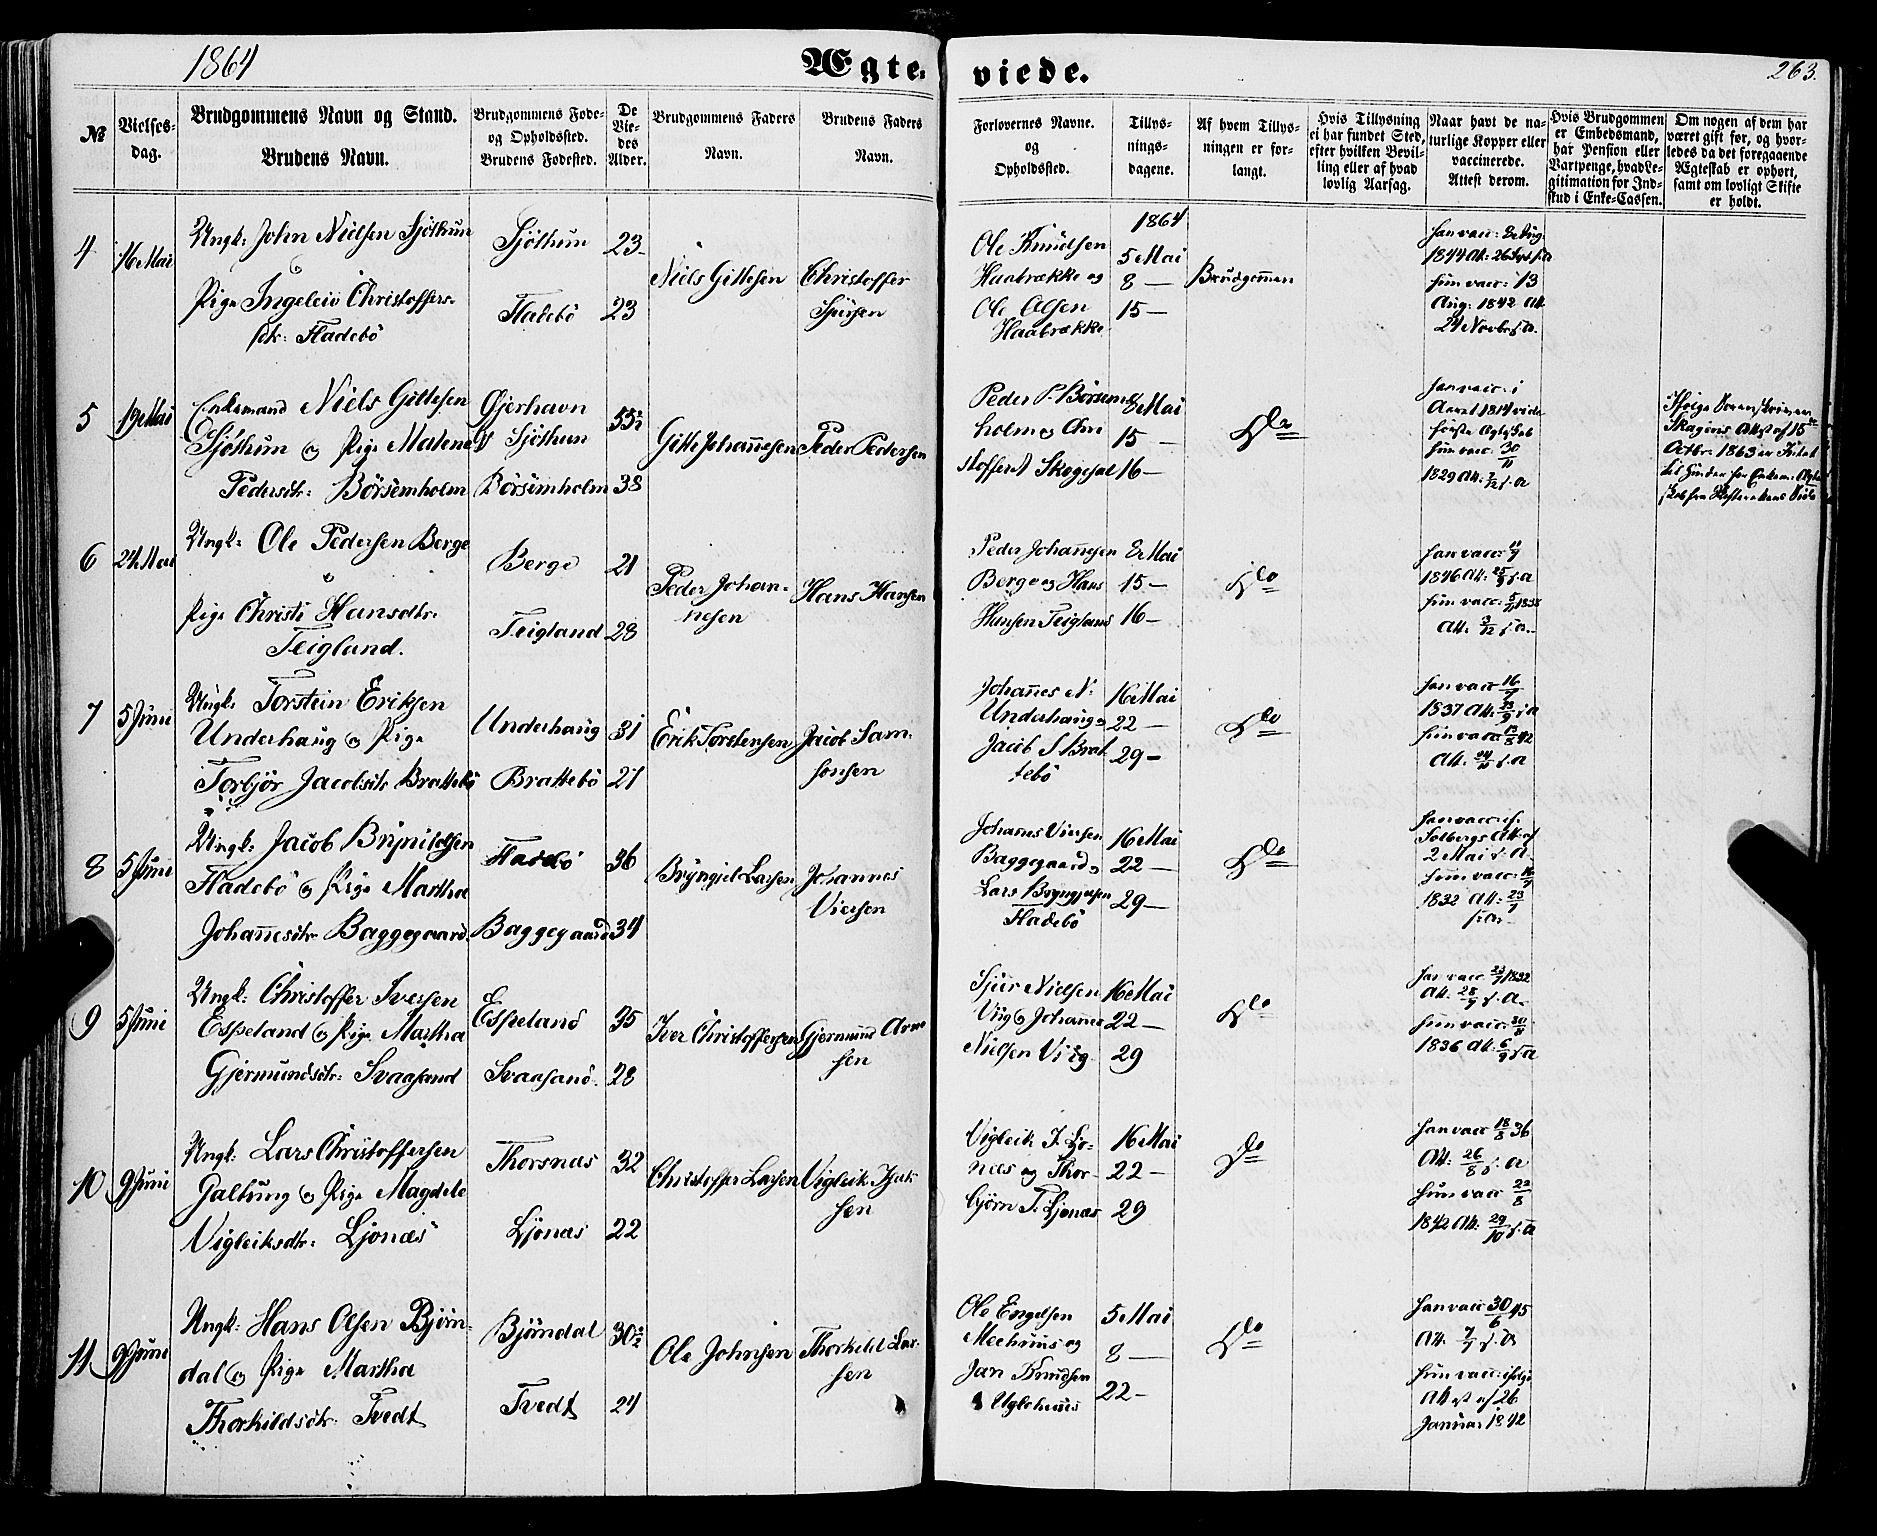 1864
Ægteviede.
263.
№
Vielses-
dag.
Brudgommens Navn og Stand.
Brudens Navn.
Brudgommens Føde-
og Opholdssted.
Brudens Fødested.
De
Vie-
des
Alder.
Brudgommens Faders
Navn.
Brudens Faders
Navn.
Forlovernes Navne.
og
Opholdssted.
Tillys-
nings-
dagene.
Af hvem Tillys-
ningen er for-
langt.
Hvis Tillysning
ei har fundet Sted,
efter hvilken Bevil-
ling eller af hvad
lovlig Aarsag.
Naar havt de na-
turlige Kopper eller
vaccinerede.
Attest derom.
Hvis Brudgommen
er Embedsmand,
har Pension eller
Vartpenge, hvad Le-
gitimation for Ind-
skud i Enke-Cassen.
Om nogen af dem har
været gift før, og hvor-
ledes da det foregaaende
Ægteskab er ophørt,
samt om lovligt Skifte
er holdt.
4
16 Mai
Ungk: John Nielsen Sjöthun
Pige Ingeleiv Christoffers-
dtr: Hadebö
Sjöthun
Hadebö
23
23
Niels Gittesen
Christoffer
Sjursen
Ole Knudsen
Haabrække og
Ole Olsen
Haabrække
1864
5 Mai
8 —
15 —
Brudgommen
han vacc:
1844 Att: 26 Sept s.a
hun vacc: 13
Aug: 1842 Att.
24 Novbr s.a.
5
19 Mai
Enkemand Niels Gittesen
Sjöthun og Pige Malene
Pedersdtr: Börsemholm
Gjerhavn
Sjöthun
Börsemholm
55½
38
Gitte Johannesen
Peder Pedersen
Peder P. Börsem-
holm og Chri
stoffer Skogesal
8 Mai
15 —
16 —
Do
han vacc: i
Aaret 1814 vide
förste Ægteskab
hun vacc: 30/11
1829 Att: 2/12 s.a
Ifølge Sorenskriver
Skagens Attest af 15de
Octbr: 1863 er Intet
til Hinder for Enkem: Ægte
skab fra Skifterettens Side
6
24 Mai
Ungk: Ole Pedersen Berge
Pige Christi Hansdtr:
Teigland.
Berge
Teigland
21
28
Peder Johan-
nesen
Hans Hansen
Peder Johannesen
Berge og Hans
Hansen Teigland
8 Mai
15 —
16 —
Do
han vacc: 11/9
1846 Att: 25/9 s.a
hun vacc: 5/11 1838
Att: 3/12 s.a.
7
5 Juni
Ungk: Torstein Eriksen
Underhaug og Pige
Torbjör Jacobsdtr Brattebö
Underhaug
Brattebö
31
21
Erik Torstensen
Jacob Sam-
sonsen
Johannes N.
Underhaug og
Jacob S Brat
tebö
16 Mai
22 —
29 —
Do
han vacc 16/9
1837 Att: 23/9 s.a
hun vacc 12/8 42
Att: 24/10 s.a
8
5 Juni
Ungk: Jacob Brynildsen
Hadebö og Pige Martha
Johannesdtr Baggegaard.
Hadebö
Baggegaard
36
34
Bryngjel Larsen
Johannes
Viersen
Johannes Viersen
Baggegaard og
Lars Bryngjelsen
Hadebö
16 Mai
22 —
29 —
Do
han vacc: if.
Solbergs Att. af
2 Mai d. A.
hun vacc: 16/9
1832 Att: 23/9
s.a.
9
5 Juni
Ungk: Christoffer Iversen
Espeland og Pige Martha
Gjermundsdtr: Svaasand
Espeland
Svaasand.
35
28
Iver Christoffersen
Gjermund Arne
sen
Sjur Nielsen
Viig og Johannes
Nielsen Viig
16 Mai
22 —
29
Do
han vacc 22/9 1832
Att: 28/9 s.a.
hun vacc: 30/8
1836 Att: 6/9 s.a
10
9 Juni
Ungk: Lars Christoffersen
Galtung og Pige Magdele
Vigleiksdtr: Ljonæs
Thorsnæs
Ljonæs
32
22
Christoffer Larsen
Vigleik Isak
sen
Vigleik I. Ljo-
næs og Thor-
björn T. Ljonæs
16 Mai
22 —
29
Do
han vacc 18/8 36
Att: 26/8 s.a
hun vacc 22/8
1842 Att: 29/10 s.a
11
9 Juni
Ungk: Hans Olsen Björn-
dal og Pige Martha
Thorkildsdtr. Tvedt
Björndal
Tvedt
30½
24
Ole Johnsen
Thorkild Lar-
sen
Ole Engelsen
Meehuus og
Jan Knudsen
Uglehuus
5 Mai
8 —
22 —
Do
han vacc 30/6 45
Att. 7/7 s.a
hun vacc: ifölge
Attest af 26
Januar 1842